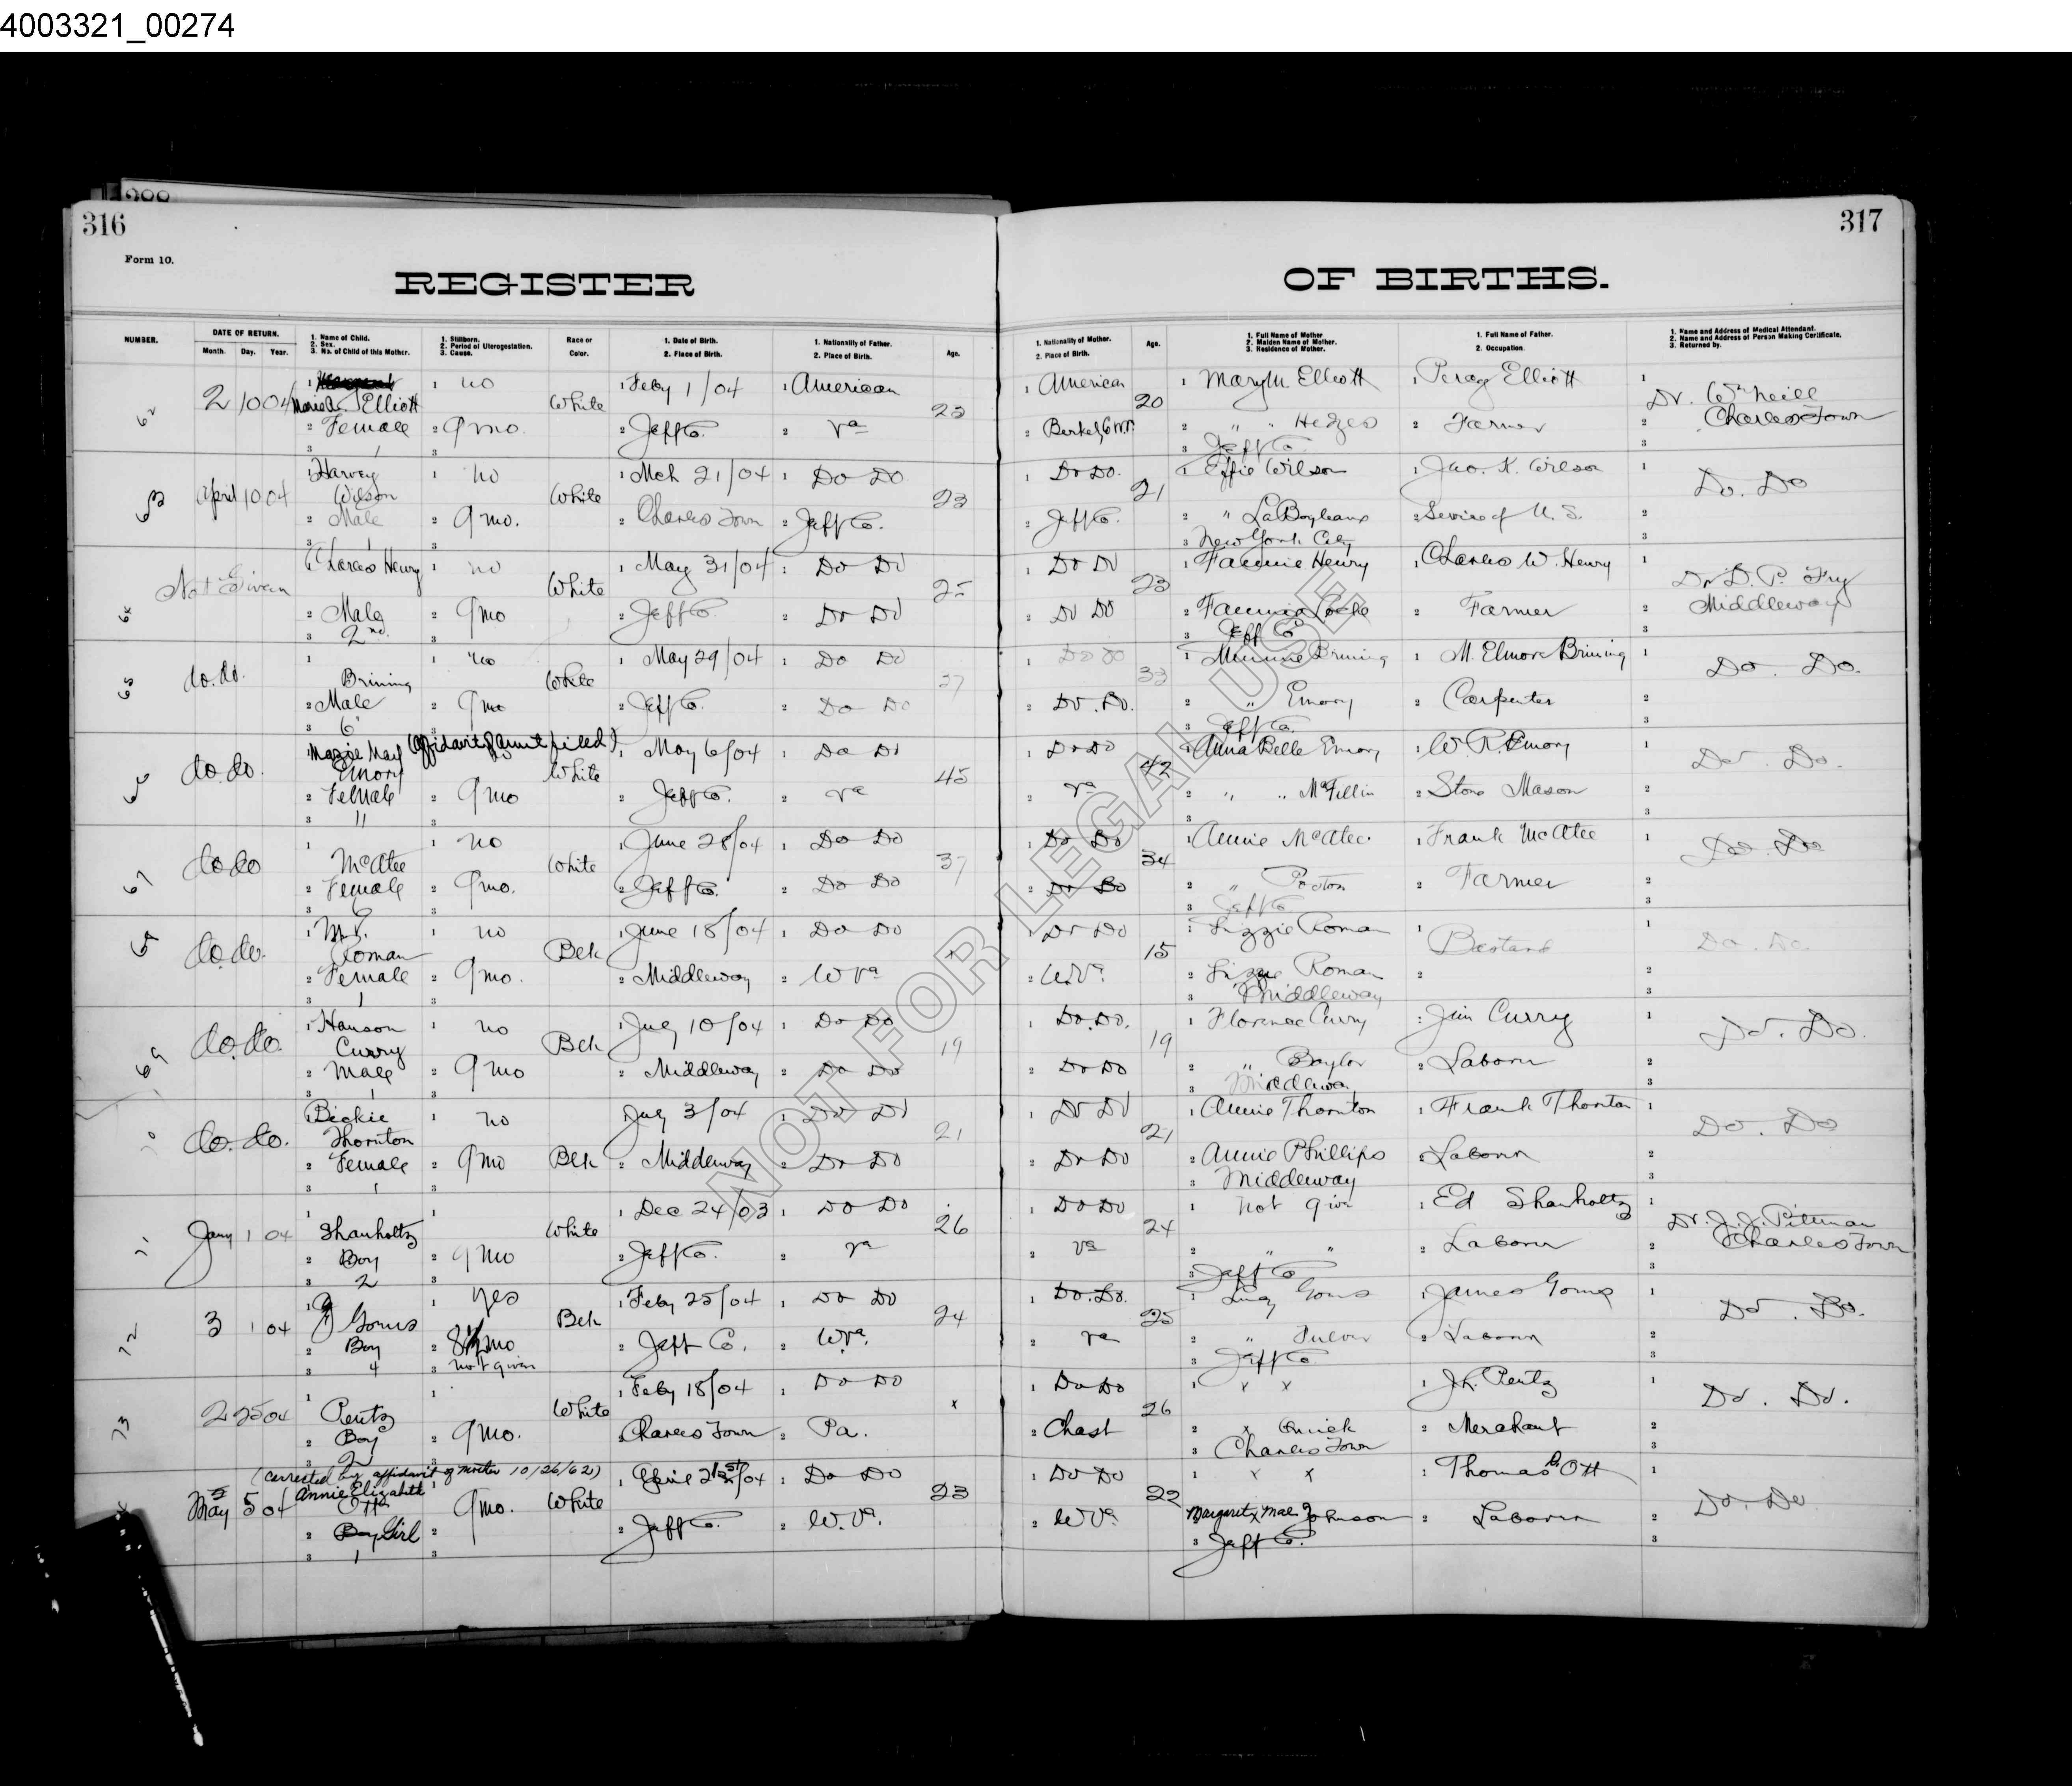 4003321_00274
288
316
317
Form 10.
REGISTER OF BIRTHS.
NUMBER.
DATE OF RETURN.
Month. Day. Year.
1. Name of Child.
2. Sex.
3. No. of Child of this Mother.
1. Stillborn.
2. Period of Uterogestation.
3. Cause.
Race or
Color.
1. Date of Birth.
2. Place of Birth.
1. Nationality of Father.
2. Place of Birth.
Age.
1. Nationality of Mother.
2. Place of Birth.
Age.
1. Full Name of Mother
2. Maiden Name of Mother.
3. Residence of Mother.
1. Full Name of Father.
2. Occupation.
1. Name and Address of Medical Attendant.
2. Name and Address of Person Making Certificate.
3. Returned by.
62 2 10 04 Elliott 1 no White 1 Feby 1/04 1 American 23 1 American 20 1 Mary M. Elliott 1 Elliott 1 Dr. Wm Neill
2 Female 2 9 mo. 2 Jeff Co. 2 Va 2 2 " " Hedges 2 Farmer 2 Charles Town
3 1 3 3 Jeff Co. 3
63 April 10 04 1 Harvey Wilson 1 no White 1 Mch 21/04 1 Do Do 23 1 Do Do. 21 1 Effie Wilson 1 Jno. K. Wilson 1 Do. Do
2 Male 2 9 mo. 2 Charles Town 2 Jeff Co. 2 Jeff Co. 2 " 2 of U.S. 2
3 1 3 3 New York City 3
64 Not Given 1 Charles Henry 1 no White 1 May 31/04 1 Do Do 25 1 Do Do 23 1 Fannie Henry 1 Charles W. Henry 1 Dr D. P. Fry
2 Male 2 9 mo 2 Jeff Co. 2 Do Do 2 Do Do 2 Fannie 2 Farmer 2 Middleway
3 2nd. 3 3 Jeff Co 3
65 do. do. 1 Brining 1 no White 1 May 29/04 1 Do Do 37 1 Do Do 33 1 Minnie Brining 1 M. Elmore Brining 1 Do. Do.
2 Male 2 9 mo 2 Jeff Co. 2 Do Do 2 Do. Do. 2 " Emory 2 Carpenter 2
3 6 3 3 Jeff Co. 3
66 do. do. 1 Mazie May Emory (Affidavit parent filed) White 1 May 6/04 1 Do Do 45 1 Do Do 42 1 Anna Belle Emory 1 W. R. Emory 1 Do. Do.
2 Female 2 9 mo 2 Jeff Co. 2 Va 2 Va 2 " " McFillin 2 Stone Mason 2
3 11 3 3 3
67 do do 1 McAtee 1 no White 1 June 28/04 1 Do Do 37 1 Do Do 34 1 Annie McAtee 1 Frank McAtee 1 Do. Do
2 Female 2 9 mo. 2 Jeff Co. 2 Do Do 2 Do Do 2 " 2 Farmer 2
3 6 3 3 Jeff Co 3
68 do. do. 1 Roman 1 no Blk 1 June 18/04 1 Do Do x 1 Do Do 15 1 Lizzie Roman 1 Bastard 1 Do. Do.
2 Female 2 9 mo. 2 Middleway 2 W Va 2 W. Va. 2 Lizzie Roman 2 2
3 1 3 3 Middleway 3
69 do. do. 1 Hanson Curry 1 no Blk 1 July 10/04 1 Do Do 19 1 Do. Do. 19 1 Florence Curry 1 Jim Curry 1 Do. Do.
2 Male 2 9 mo 2 Middleway 2 Do Do 2 Do Do 2 " Baylor 2 Laborer 2
3 1 3 3 Middleway 3
70 do. do. 1 Thornton 1 no 1 July 3/04 1 Do Do 21 1 Do Do 21 1 Annie Thornton 1 Frank Thornton 1 Do. Do
2 Female 2 9 mo Blk 2 Middleway 2 Do Do 2 Do Do 2 Annie Phillips 2 Laborer 2
3 1 3 3 Middleway 3
71 Jany 1 04 1 Shanholtz 1 White 1 Dec 24/03 1 Do Do 26 1 Do Do 24 1 not given 1 Ed Shanholtz 1 Dr. J. J. Pittman
2 Boy 2 9 mo 2 Jeff Co. 2 Va 2 Va 2 " " 2 Laborer 2 Charles Town
3 2 3 3 Jeff Co 3
72 3 1 04 1 Goins 1 yes Blk 1 Feby 25/04 1 Do Do 24 1 Do. Do. 25 1 Lucy Goins 1 James Goins 1 Do. Do.
2 Boy 2 8½ mo 2 Jeff Co. 2 W Va. 2 Va 2 " 2 Laborer 2
3 4 3 not given 3 Jeff Co 3
73 2 25 04 1 Pentz 1 White 1 Feby 18/04 1 Do Do x 1 Do Do 26 1 x x 1 J. L. Pentz 1 Do. Do.
2 Boy 2 9 mo. 2 Charles Town 2 Pa. 2 Chast 2 x 2 Merchant 2
3 2 3 3 Charles Town 3
(Corrected by affidavit of mother 10/26/62)
May 5 04 Annie Elizabeth Ott 1 9 mo. White 1 April /04 1 Do Do 23 1 Do Do 22 1 x x 1 Thomas Ott 1 Do. Do
2 Boy Girl 2 2 Jeff Co. 2 W. Va. 2 W Va. Margaret Mae Johnson 2 Laborer 2
3 1 3 3 Jeff Co. 3
NOT FOR LEGAL USE